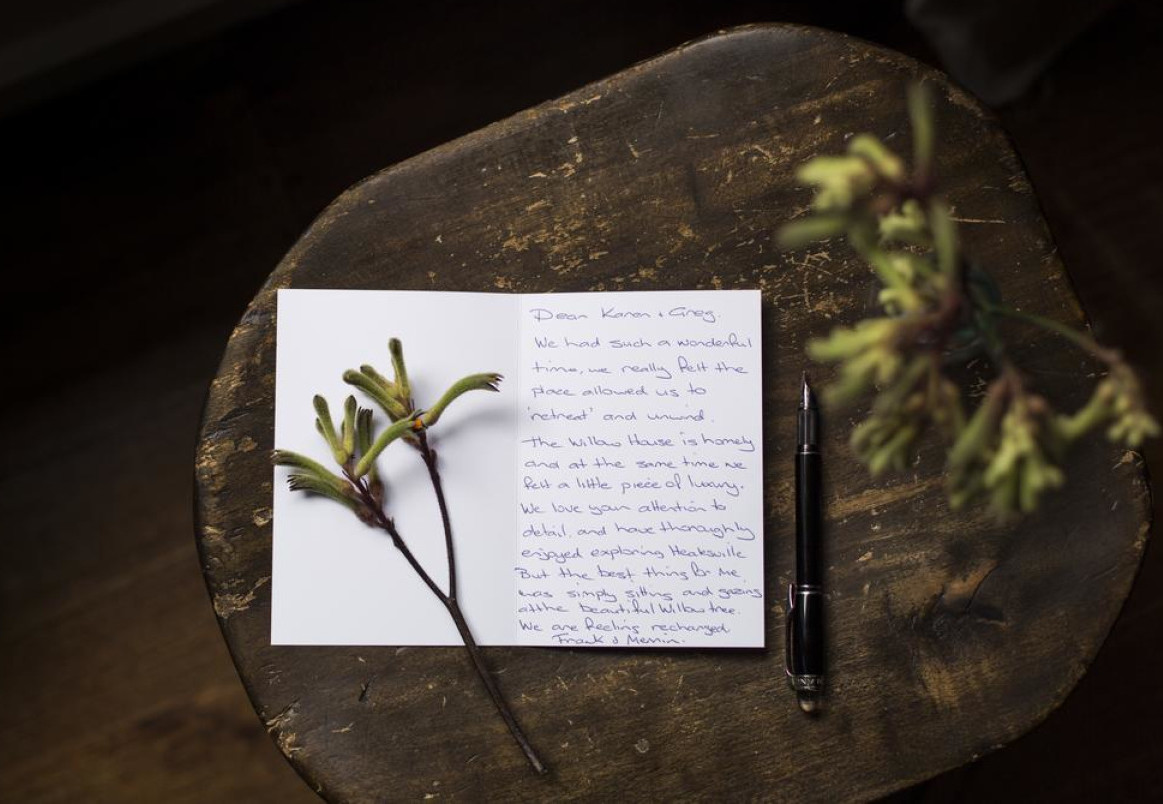 Dear Karen & Greg.
We had such a wonderful
time, we really felt the
place allowed us to
'retreat' and unwind.
The Willow House is homely
and at the same time we
felt a little piece of luxury.
We love your attention to
detail, and have thoroughly
enjoyed exploring Healesville
But the best thing for me,
was simply sitting and gazing
at the beautiful Willow tree.
We are feeling recharged
Frank &